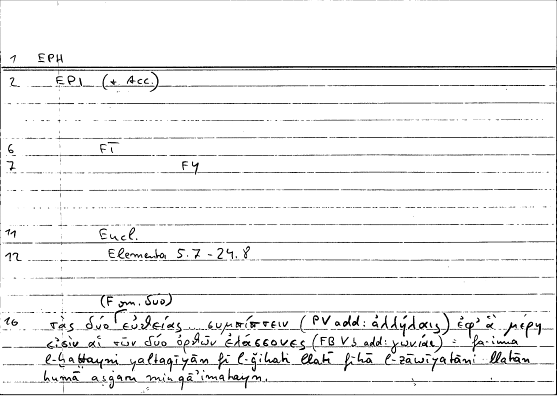 1 EPH
2 EPI (+ Acc.)
6 FĪ
7 FY
11 Eucl.
12 Elementa 5.7-24.8
(F om. δύο)
16 τὰς δύο εὐθείας συμπίπτειν (PV add: ἀλλήλαις) ἐφ' ἃ μέρη
εἰσὶν αἱ τῶν δύο ὀρθῶν ἐλάσσονες (FBVS add: γωνίαι) = fa-inna
l-ḫaṭṭayni yaltaqiyāni fī l-ǧihati llatī fīhā l-zāwiyatāni llatāni
humā aṣġaru min qā'imatayn.